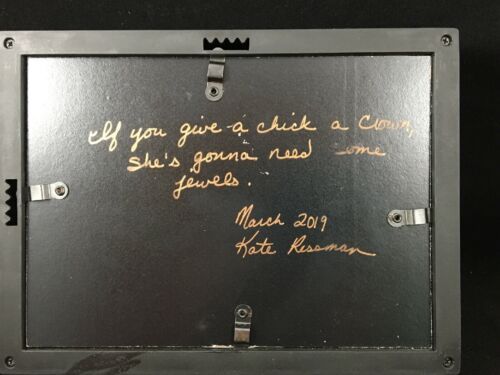 If you give a chick a Crown,
She's gonna need some
jewels.
March 2019
Kate Rissman